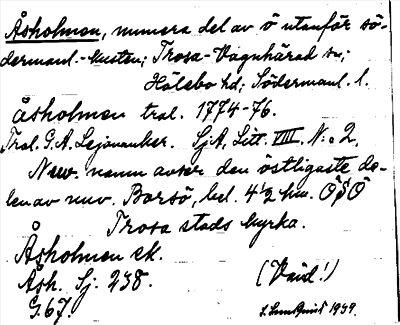 Åsholmen, numera del av ö utanför sö-
dermanl.-kusten; Trosa-Vagnhärad sn;
Hölebo hd; Södermanl. l.
Åsholmen tral. 1774-76.
Tral. G.A. Lejonanker. SjA, Litt. VIII. N:o 2.
Nuv. namn avser den östligaste de-
len av nuv. Borsö, bel. 4 1/2 km. ÖSÖ
Trosa stads kyrka.
Åsholmen ek.
Åsh. Sj. 238. (Vrid!)
G.67. 1939.